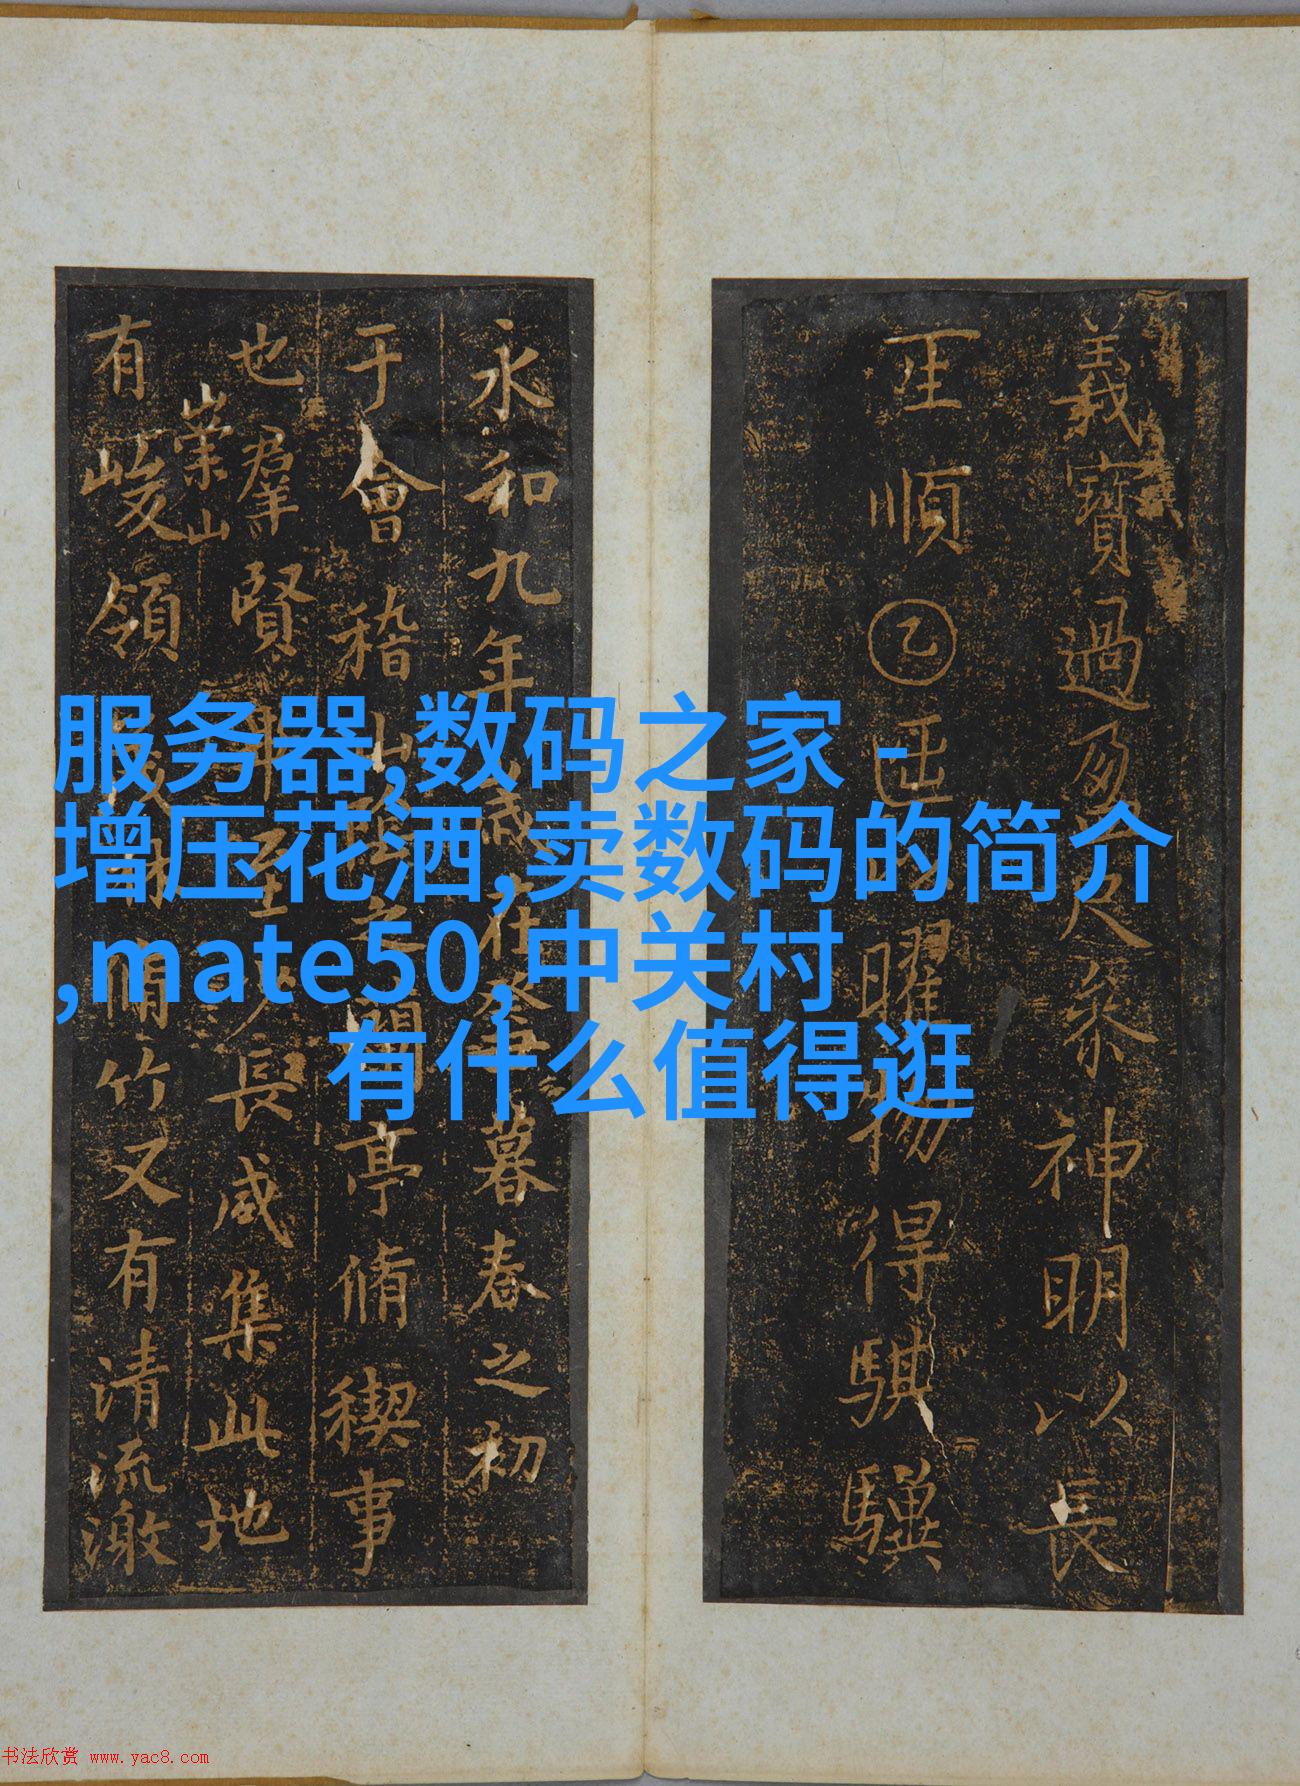 服务器,数码之家 -
增压花洒,卖数码的简介
,mate50,中关村
有什么值得逛
義寶過尺神明以長
順乙曜得騏驥
永和九年歲在癸暮春之初
于會稽山陰之蘭亭脩禊事
也羣賢畢至少長咸集此地
崇山
有峻領茂林脩竹又有清流激
书法欣赏 www.yac8.com